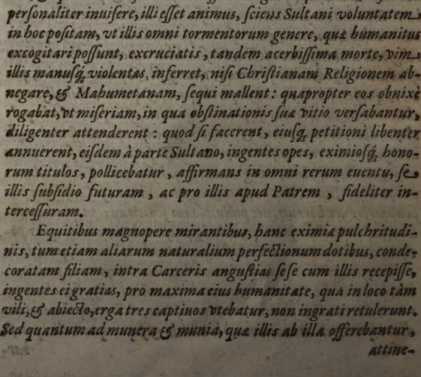 personaliter inuisere, illi esset animus, sciens Sultani voluntatem
in hoc positam, vt illis omni tormentorum genere, quæ humanitus
excogitari possunt, excruciatis, tandem acerbissima morte, vim
illis manusq́, violentas inferret, nisi Christianam Religionem ab-
negare, & Mahumetanam, sequi mallent: quapropter eos obnixè
rogabat, vt miseriam, in qua obstinationis suæ vitio versabantur,
diligenter attenderent: quod si facerent, eiusq́, petitioni libenter
annuerent, eisdem à parte Sultano, ingentes opes, eximiosq́, hono-
rum titulos, pollicebatur, affirmans in omni rerum euentu, se
illis subsidio futuram, ac pro illis apud Patrem, fideliter in-
tercessuram.
Equitibus magnopere mirantibus, hanc eximia pulchritudi-
nis, tum etiam aliarum naturalium perfectionum dotibus, conde-
coratam filiam, intra Carceris angustias sese cum illis recepisse,
ingentes ei gratias, pro maxima eius humanitate, qua in loco tàm
vili, & abiecto, erga tres captiuos vtebatur, non ingrati retulerunt.
Sed quantum ad munera & munia, quæ illis ab illa offerebantur,
attine-